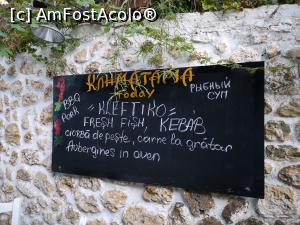 (c) AmFostAcolo®
КЛИМАТАРИА
today
РЫБНЫЙ
СУП
BBQ
Pork
"KLEFTIKO"
FRESH FISH, KEBAB
ciorbă de pește, carne la grătar
Aubergines in oven